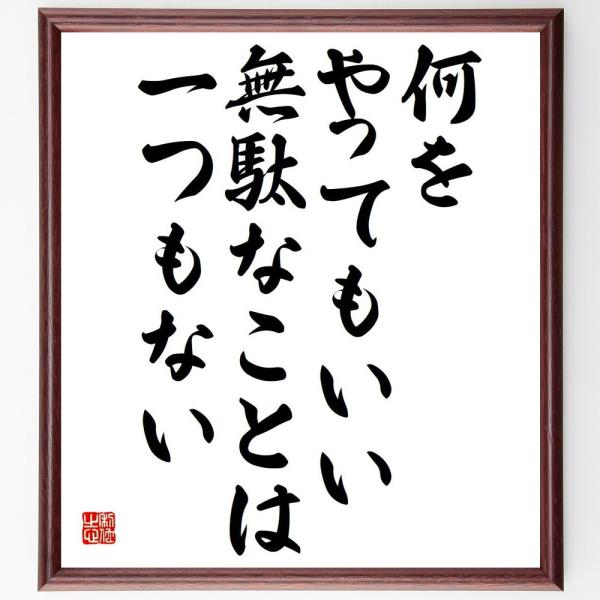 何を
やってもいい
無駄なことは
一つもない